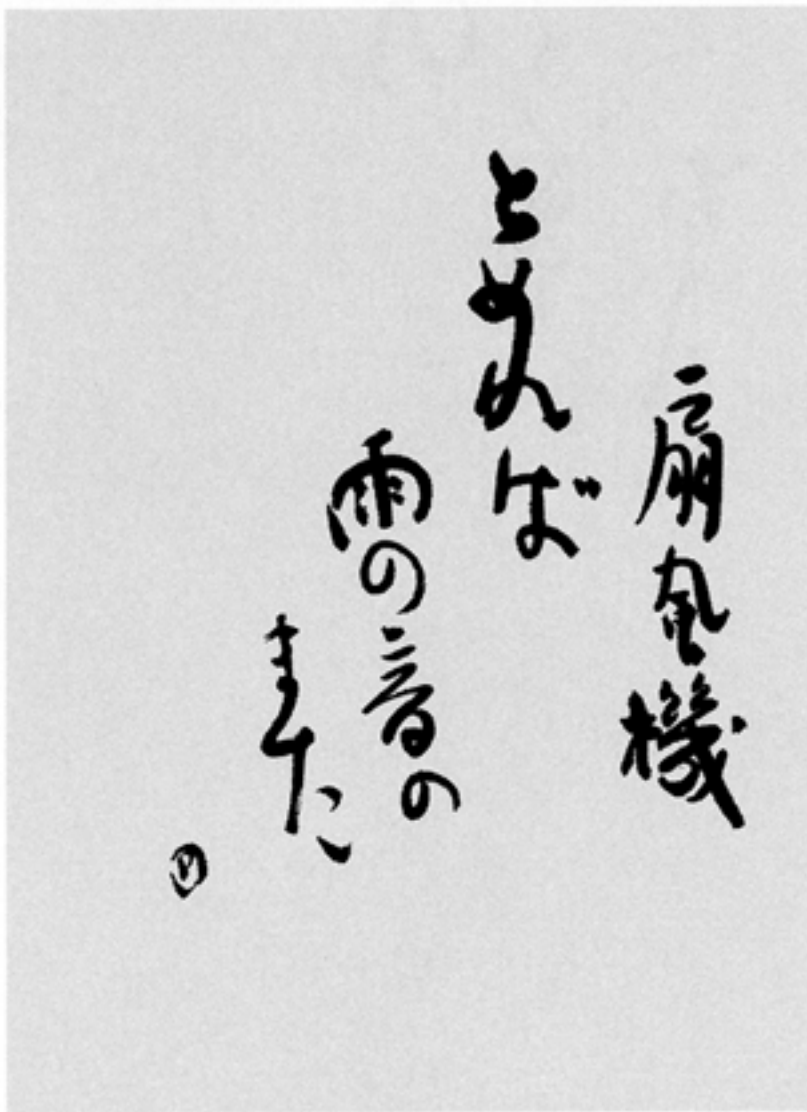 扇風機
とめれば
雨の音の
また